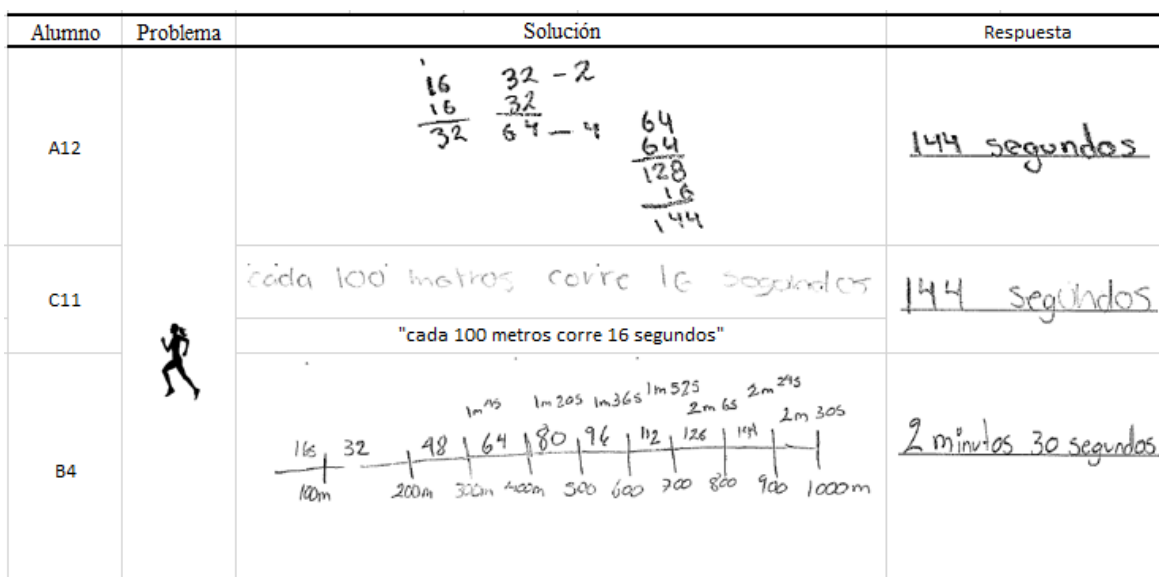 Alumno Problema Solución Respuesta
A12
16
16
32
32 - 2
32
64 - 4
64
64
128
16
144
144 segundos
C11
cada 100 metros corre 16 segundos
144 segundos
"cada 100 metros corre 16 segundos"
B4
1m 20s 1m36s 1m52s 2m 6s 2m 24s 2m 30s
16s 32 48 64 80 96 112 126 144
100m 200m 300m 400m 500 600 700 800 900 1000m
2 minutos 30 segundos